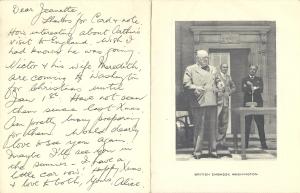 Dear Jeanette
Thanks for Card & note
How interesting about Arthur's
visit to England. Wish I
had known he was going.
Victor & his wife, Meredith,
are coming to Washington
for Christmas until
Jan 1st. Have not seen
them since last Xmas
Am pretty busy preparing
for them. Would dearly
love to see you again.
Maybe I'll see you in
the summer - I have a
little car now! Happy Xmas
& love to both, Yours,
BRITISH EMBASSY, WASHINGTON